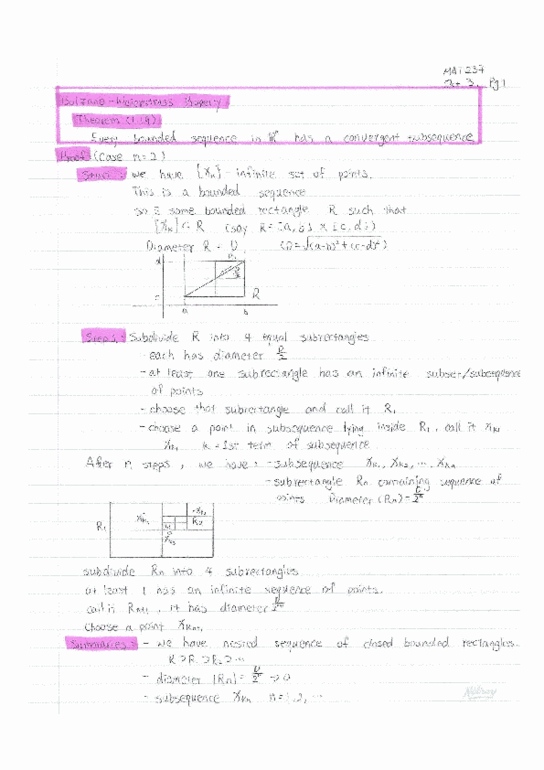 MAT 237
Pg 1
Bolzano-Weierstrass Property
Theorem (1.19)
Every bounded sequence in ℝⁿ has a convergent subsequence
Proof (Case n=2)
we have {Xₙ} - infinite set of points.
This is a bounded sequence
so ∃ some bounded rectangle R such that
{Xₙ} ⊂ R (say R = [a, b] x [c, d])
Diameter R = D (D = √(a-b)² + (c-d)²)
d
R
c
a b
Steps: Subdivide R into 4 equal subrectangles
- each has diameter D/2
- at least one subrectangle has an infinite subset/subsequence
of points
- choose that subrectangle and call it R₁
- choose a point in subsequence lying inside R₁, call it Xₖ₁
Xₖ₁ k = 1st term of subsequence
After n steps, we have: - subsequence Xₖ₁, Xₖ₂, ... Xₖₙ
- subrectangle Rₙ containing sequence of
points Diameter (Rₙ) = D/2ⁿ
R₁ Xₖ₁ Xₖ₂ R₂
Xₖ₃
subdivide Rₙ into 4 subrectangles
at least 1 has an infinite sequence of points.
call it Rₙ₊₁, it has diameter
choose a point Xₖₙ₊₁
Summarizes: - we have nested sequence of closed bounded rectangles.
R ⊃ R₁ ⊃ R₂ ⊃ ...
- diameter (Rₙ) = D/2ⁿ → 0
- subsequence Xₖₙ n = 1, 2, ...